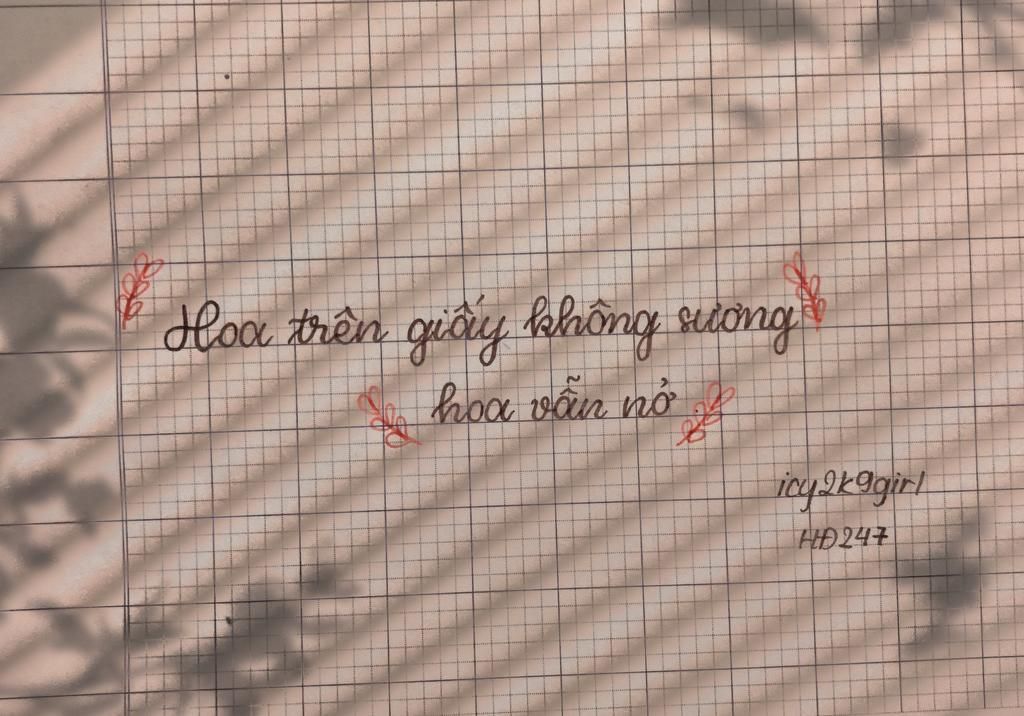 Hoa trên giấy không sương
hoa vẫn nở
icy2k9girl
HĐ247